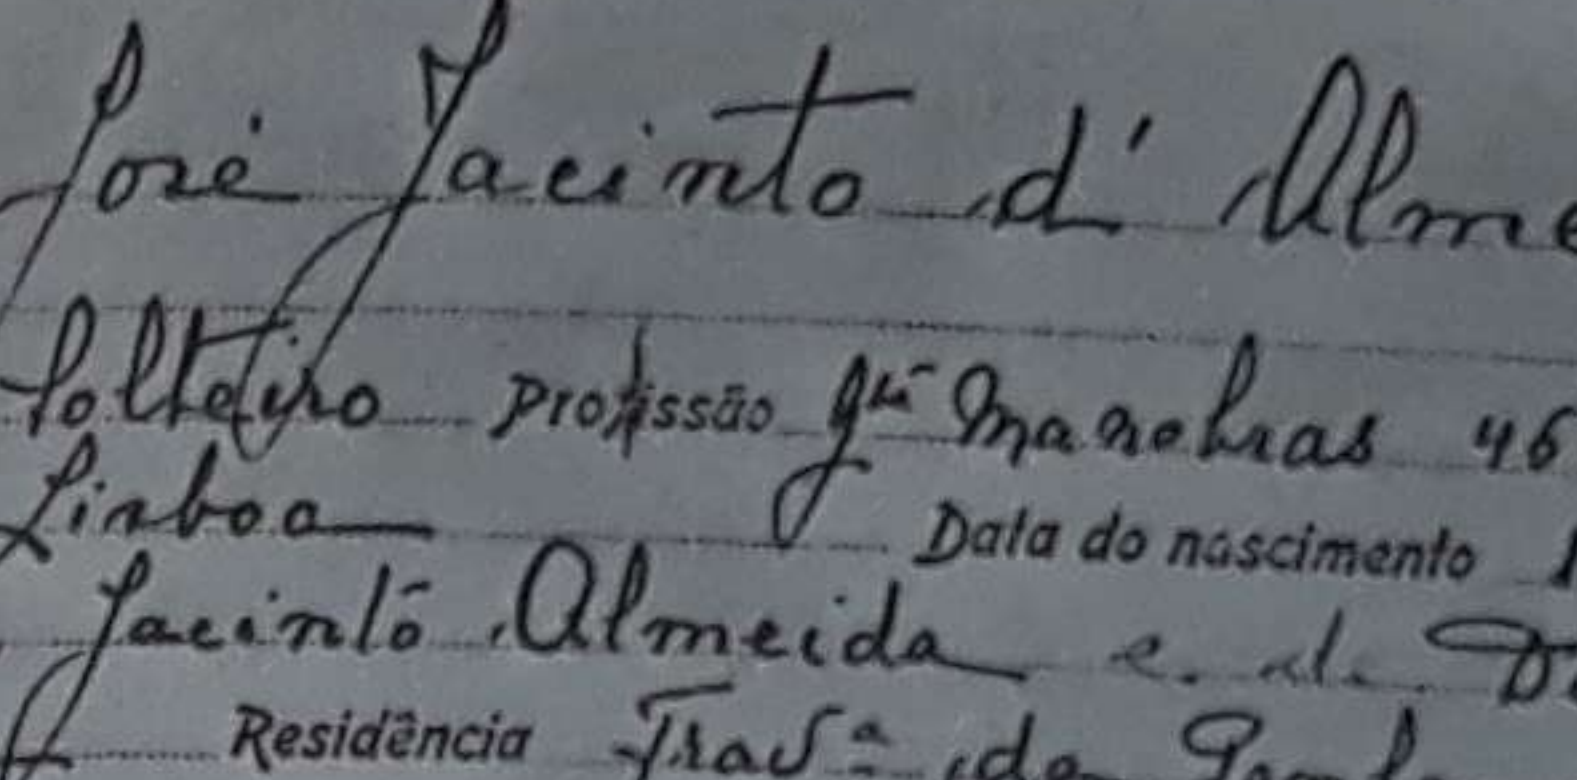 José Jacinto d' Alme
Solteiro Profissão g.te Manobras 46
Lisboa Data do nascimento
Jacinto Almeida e de
Residência Trav.ª da